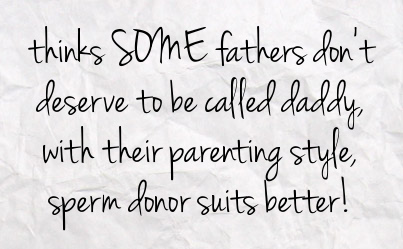 thinks SOME fathers don't
deserve to be called daddy,
with their parenting style,
sperm donor suits better!